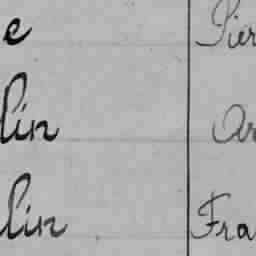 e Pier
lin Ar
lin Fra